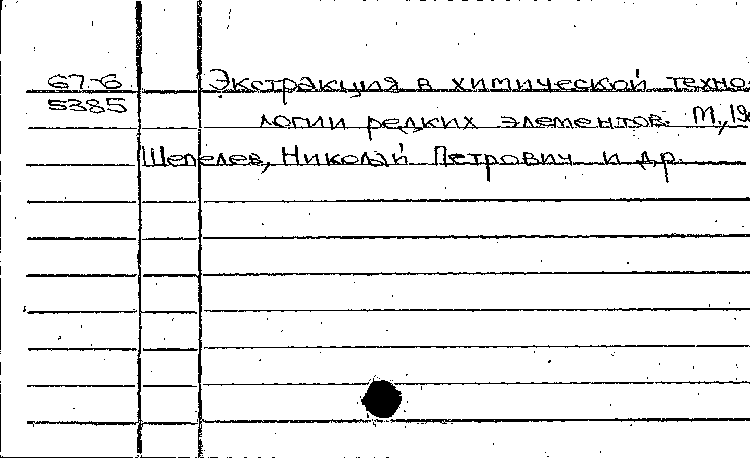 67-6 Экстракция в химической техно-
5385 логии редких элементов. М.,
Шепелев, Николай Петрович и др.